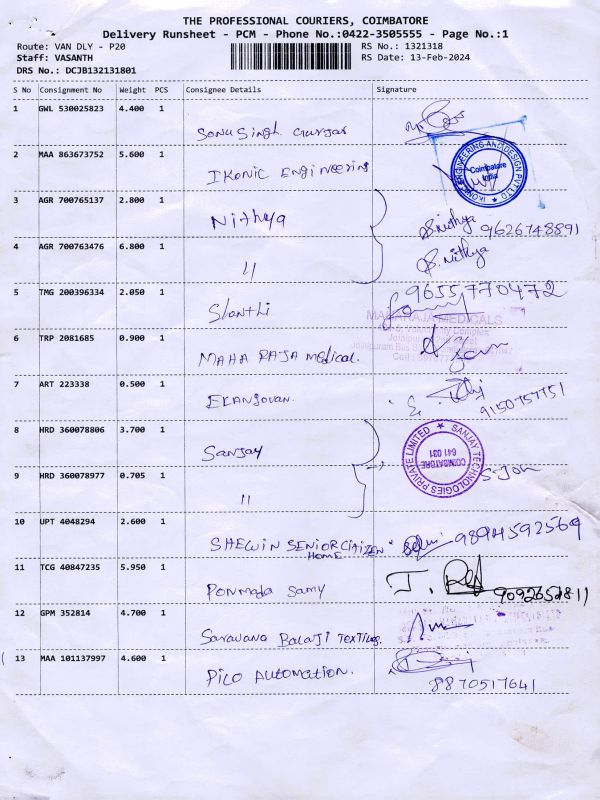 THE PROFESSIONAL COURIERS, COIMBATORE
Delivery Runsheet - PCM - Phone No.:0422-3505555 - Page No.:1
Route: VAN DLY - P20
Staff: VASANTH
DRS No.: DCJB132131801
RS No.: 1321318
RS Date: 13-Feb-2024
S No Consignment No Weight PCS Consignee Details Signature
1 GWL 530025823 4.400 1 Sonu Singh Gurjar
2 MAA 863673752 5.600 1 IKONIC ENGINEERING
IKONIC ENGINEERING AND DESIGN PVT LTD
Coimbatore
India
3 AGR 700765137 2.800 1 Nithya S.Nithya 9626748891
4 AGR 700763476 6.800 1 " S.Nithya
5 TMG 200396334 2.050 1 Shanthi 9655770472
MAHARAJA MEDICALS
6 TRP 2081685 0.900 1 MAHA RAJA Medical.
7 ART 223338 0.500 1 9150757151
8 HRD 360078806 3.700 1 Sanjay
SANJAY TECHNOLOGIES PRIVATE LIMITED
COIMBATORE
641 031
9 HRD 360078977 0.705 1 "
10 UPT 4048294 2.600 1 SHEWIN SENIOR CIAIZEN HOME 9894592569
11 TCG 40847235 5.950 1 Ponmaja Samy 9092652811
12 GPM 352814 4.700 1 Saravana Balaji Textiles.
13 MAA 101137997 4.600 1 PICO AUTOMATION. 8870517641